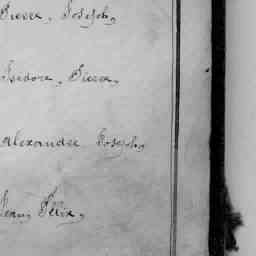 Pierre, Joseph,
Isidore, Pierre,
Alexandre Joseph,
Jean, Félix,